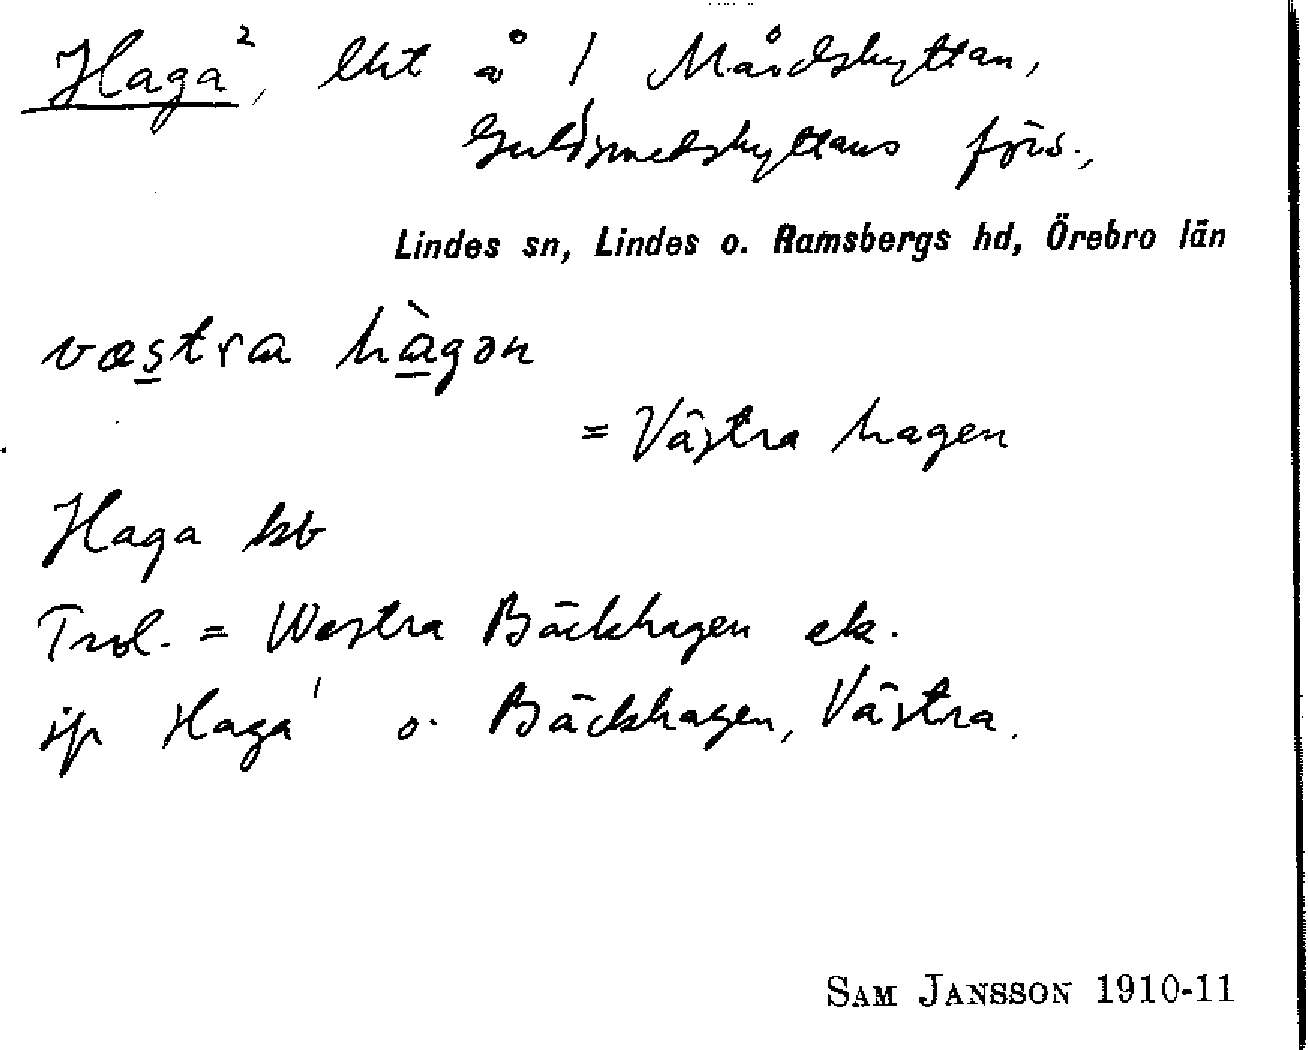 Haga², lht å 1 Mårdshyttan,
Guldsmedshyttans förs.,
Lindes sn, Lindes o. Ramsbergs hd, Örebro län
væstra hàgən
= Västra hagen
Haga kb
Trol. = Westra Bäckhagen ek.
jfr Haga¹ o. Bäckhagen, Västra.
SAM JANSSON 1910-11